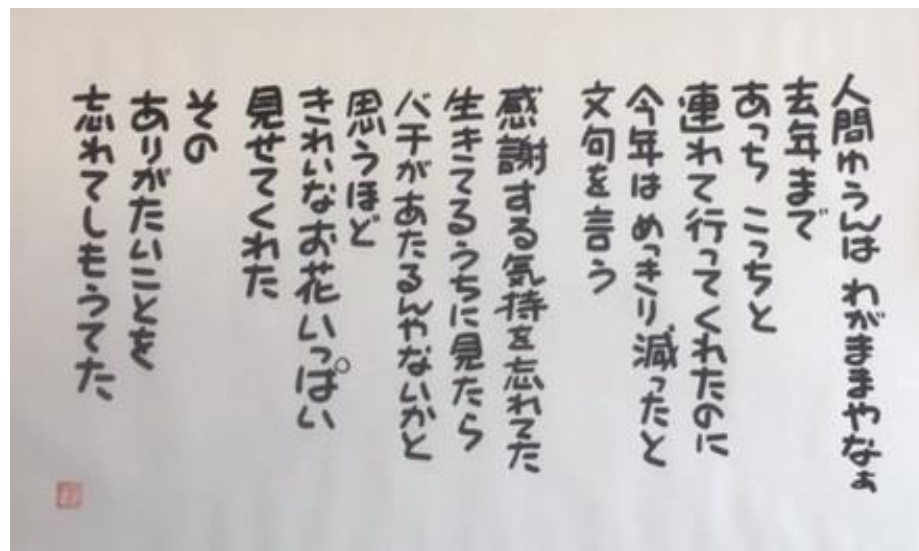 人間ゆうんは わがままやなぁ
去年まで
あっち こっちと
連れて行ってくれたのに
今年は めっきり減ったと
文句を言う
感謝する気持を忘れてた
生きてるうちに見たら
バチがあたるんやないかと
思うほど
きれいなお花いっぱい
見せてくれた
その
ありがたいことを
忘れてしもうてた